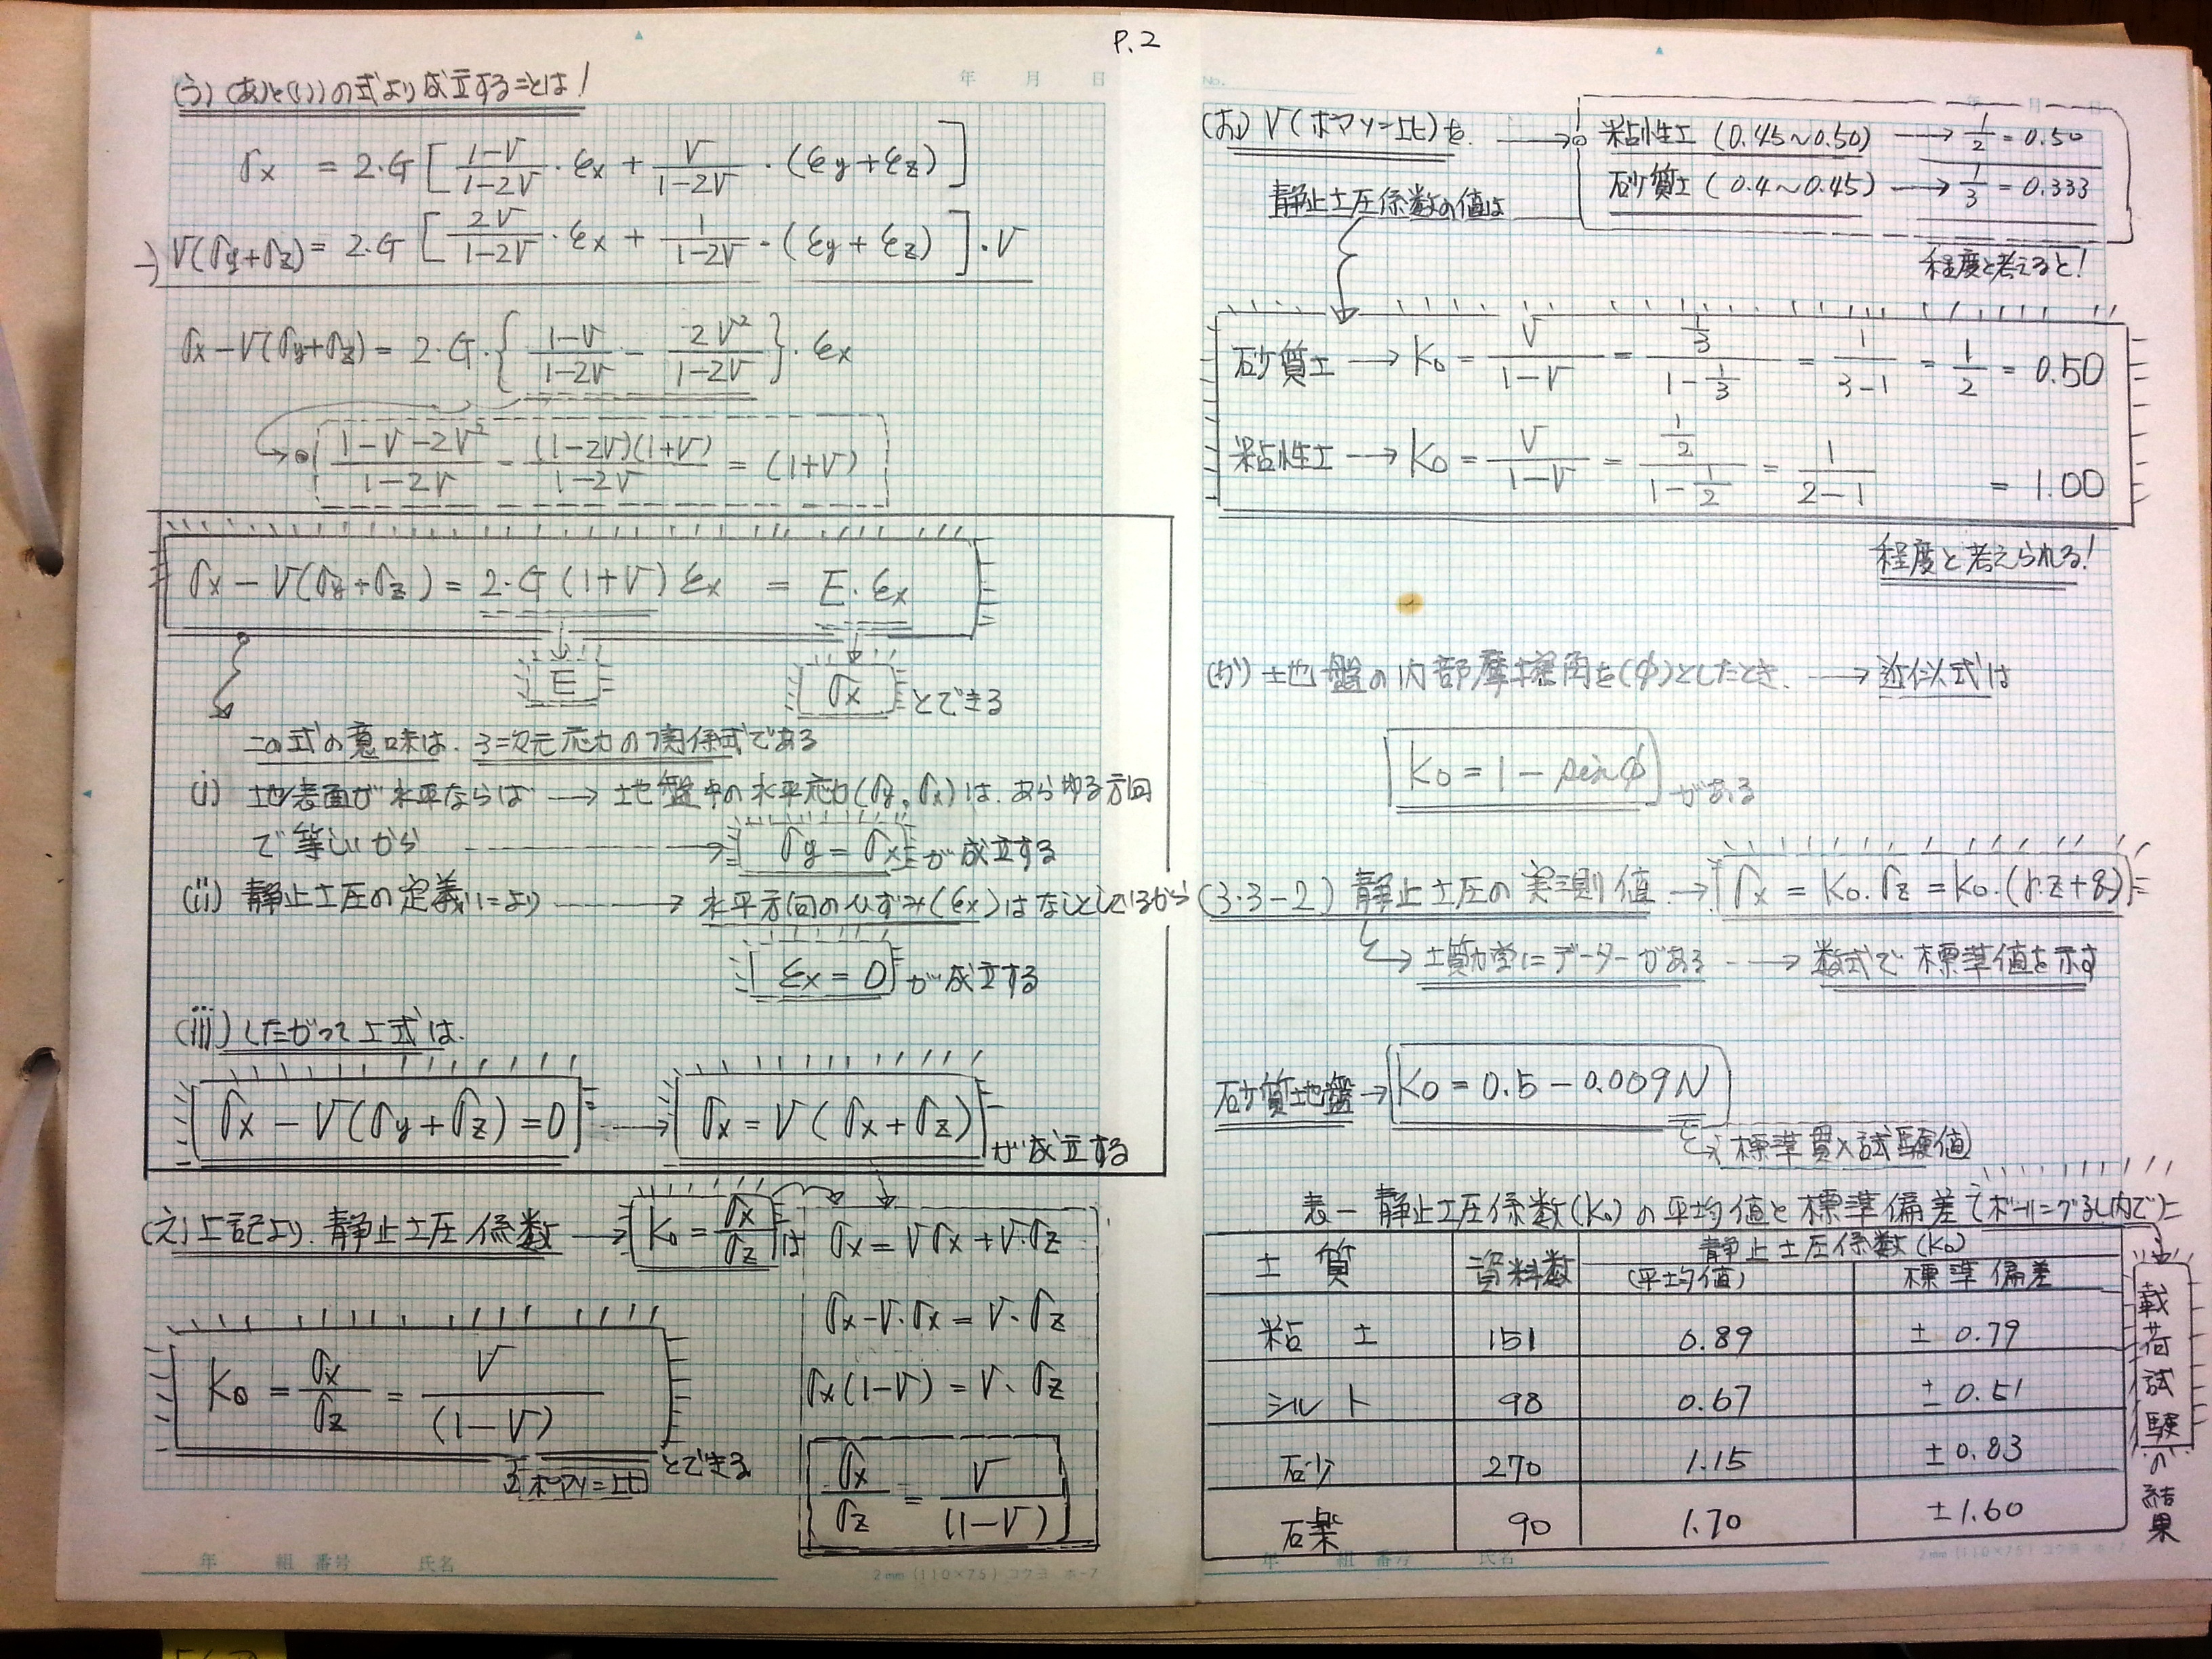 P.2
年 月 日
(う) (あ)と(い)の式より成立することは!
σx = 2・G [ (1-ν)/(1-2ν)・εx + ν/(1-2ν)・(εy+εz) ]
-) ν(σy+σz) = 2・G [ 2ν/(1-2ν)・εx + 1/(1-2ν)・(εy+εz) ]・ν
σx-ν(σy+σz) = 2・G・{ (1-ν)/(1-2ν) - 2ν²/(1-2ν) }・εx
(1-ν-2ν²)/(1-2ν) = (1-2ν)(1+ν)/(1-2ν) = (1+ν)
σx-ν(σy+σz) = 2・G(1+ν)εx = E・εx
E σx とできる
この式の意味は. 3=次元応力の関係式である
(i) 地表面が水平ならば → 地盤中の水平応力(σy,σx)は、あらゆる方向
で等しいから → σy = σx が成立する
(ii) 静止土圧の定義により → 水平方向のひずみ(εx)はなしとしているから
εx = 0 が成立する
(iii) したがって上式は.
σx-ν(σy+σz)=0 → σx=ν(σx+σz) が成立する
(え) 上記より. 静止土圧係数 → K0 = σx/σz は
σx = νσx+ν・σz
σx-ν・σx = ν・σz
σx(1-ν) = ν・σz
σx/σz = ν/(1-ν)
K0 = σx/σz = ν/(1-ν) とできる
ポアソン比
年 組 番号 氏名
2mm (110×75) コクヨ ホ-7
No.
年 月 日
(お) ν(ポアソン比)を. → 粘性土 (0.45~0.50) → 1/2 = 0.50
砂質土 (0.4~0.45) → 1/3 = 0.333
静止土圧係数の値は
程度と考えると!
砂質土 → K0 = ν/(1-ν) = (1/3)/(1-1/3) = 1/(3-1) = 1/2 = 0.50
粘性土 → K0 = ν/(1-ν) = (1/2)/(1-1/2) = 1/(2-1) = 1.00
程度と考えられる!
(か) 土地盤の内部摩擦角を(φ)としたとき. → 近似式は
K0 = 1 - sinφ がある
(3.3-2) 静止土圧の実測値 → σx = K0・σz = K0・(γ・z+q)
土質力学にデーターがある → 数式で標準値を示す
砂質地盤 → K0 = 0.5 - 0.009N
標準貫入試験値
表- 静止土圧係数(K0)の平均値と標準偏差(ボーリング孔内で)に
土 質 資料数 静止土圧係数(K0)
(平均値) 標準偏差
粘 土 151 0.89 ± 0.79
シルト 98 0.67 ± 0.51
砂 270 1.15 ±0.83
石楽 90 1.70 ±1.60
載荷試験の結果
年 組 番号 氏名
2mm (110×75) コクヨ ホ-7